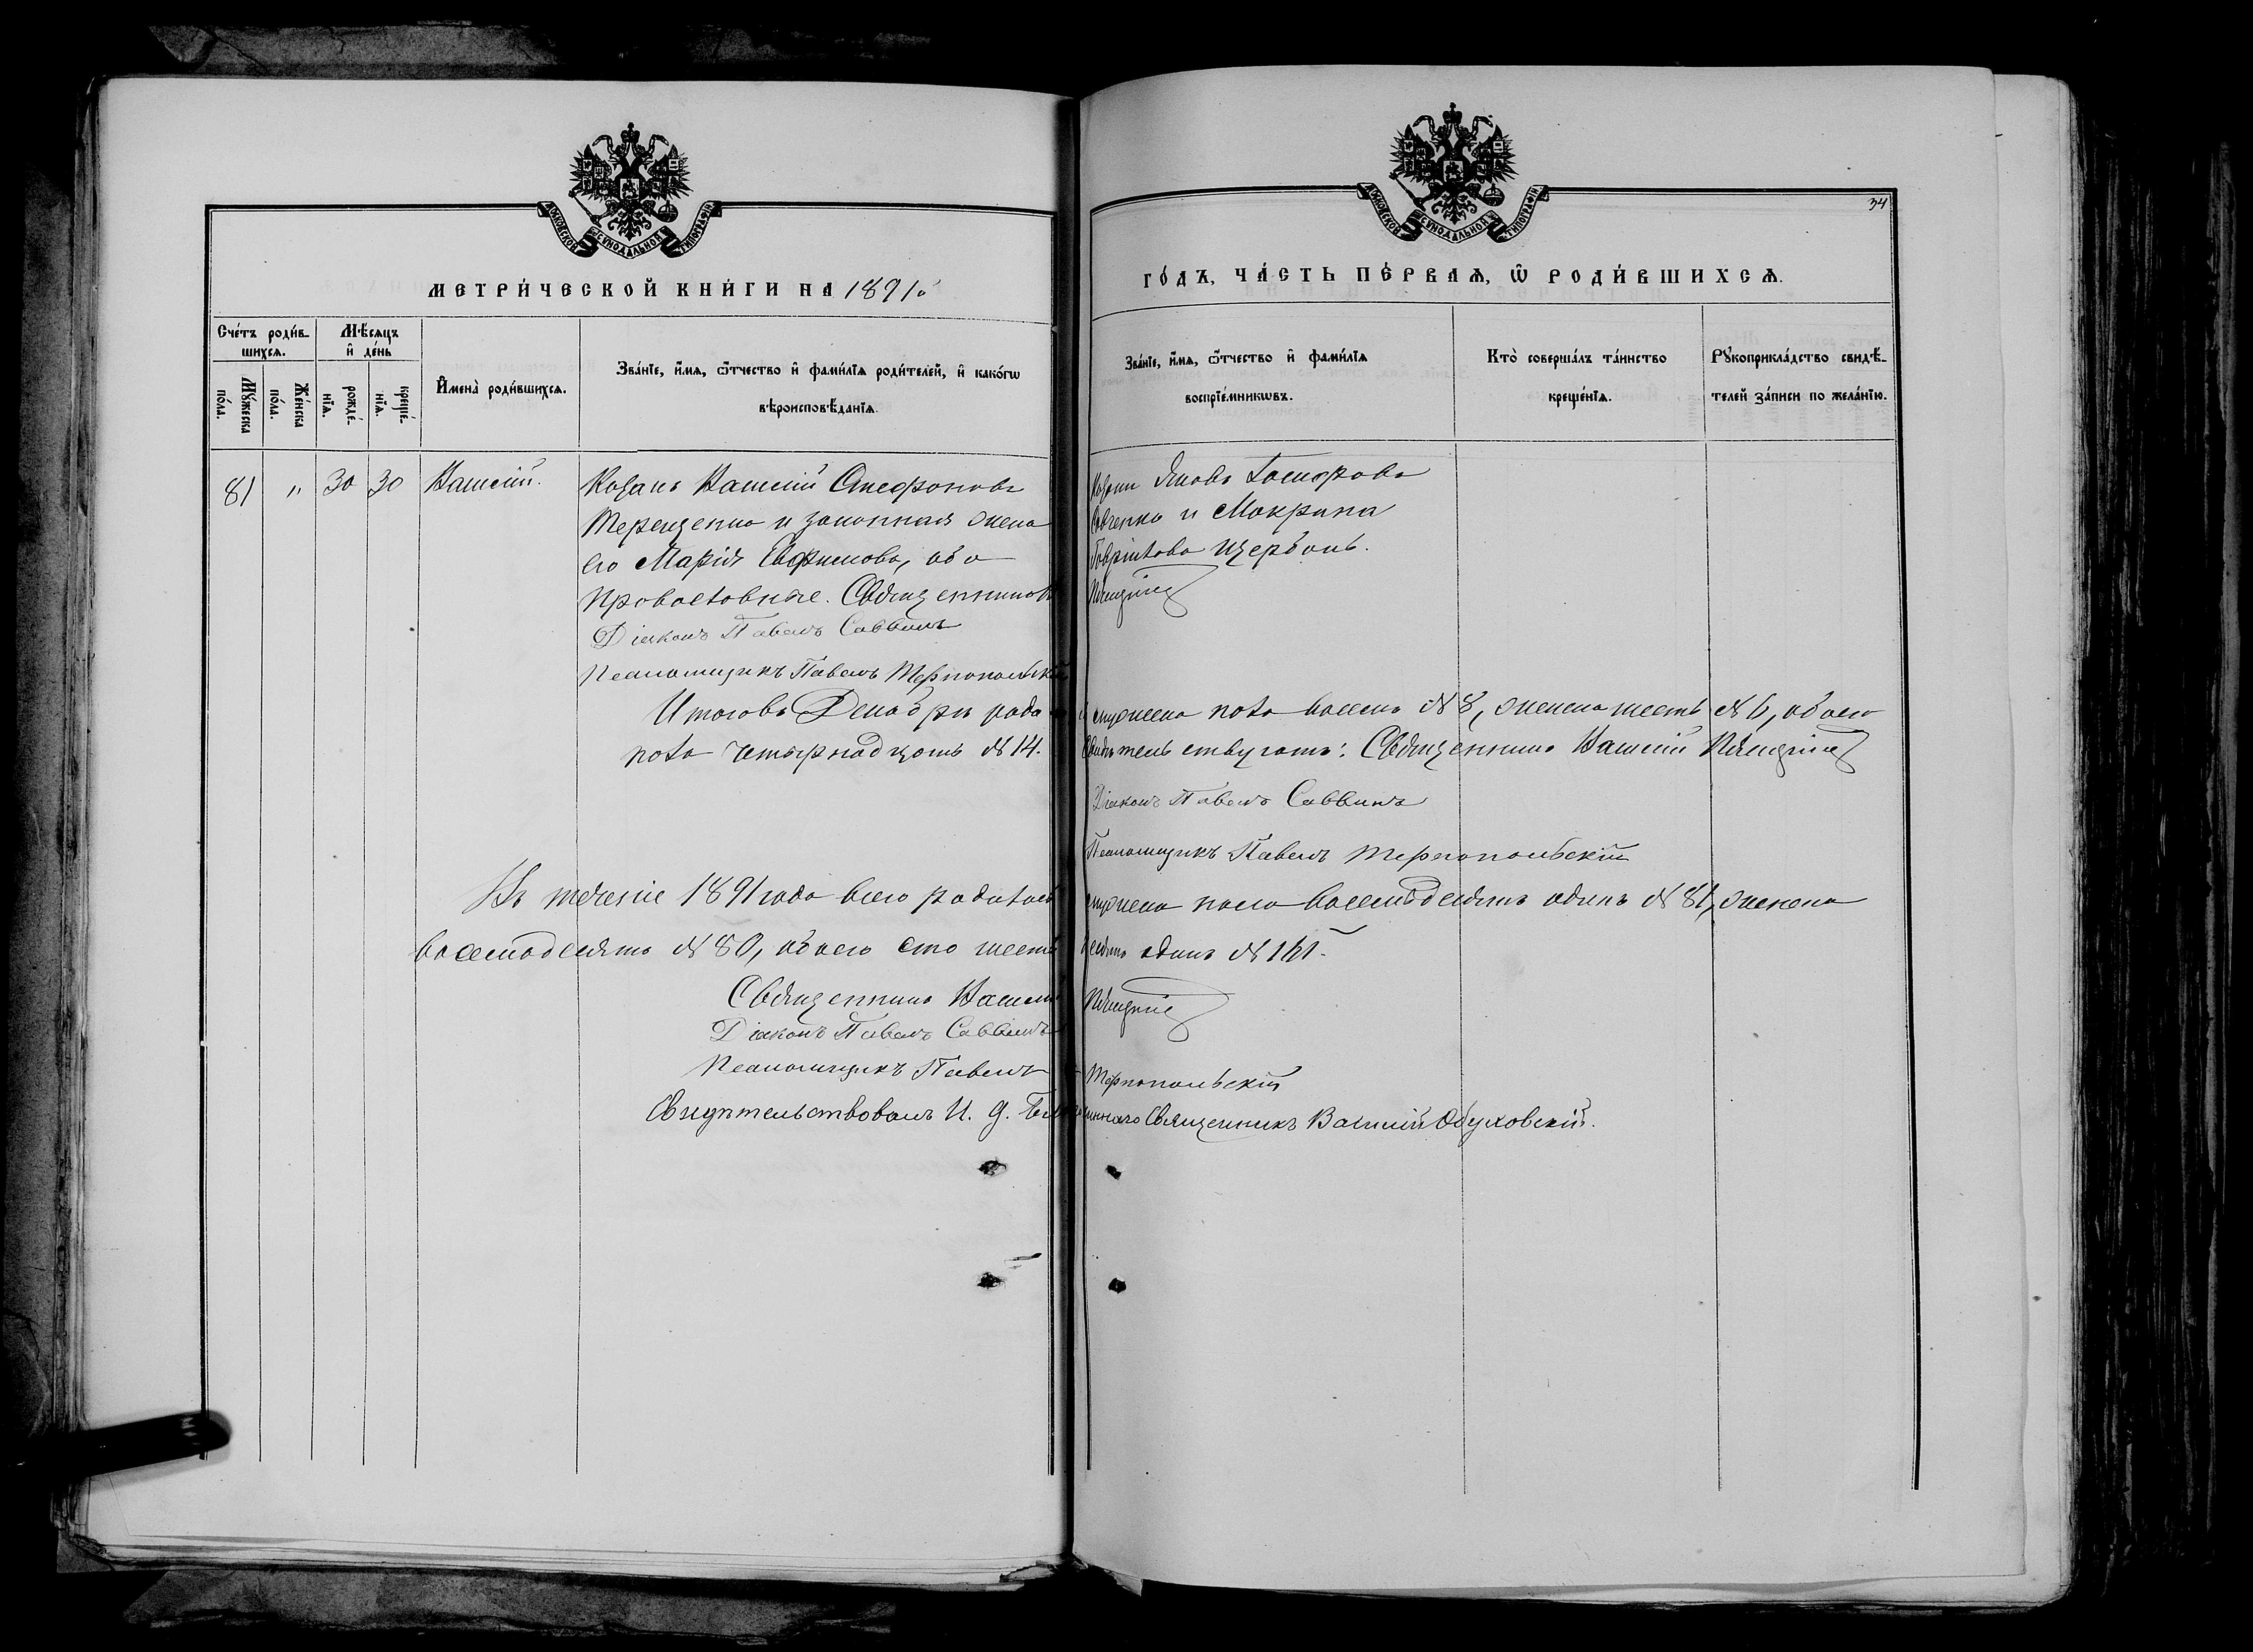 МОСКОВСКОЙ СѴНОДАЛЬНОЙ ТИПОГРАФІИ
МЕТРИ́ЧЕСКОЙ КНИ́ГИ НА 1891й
Сче́тъ роди́вшихсѧ.
Мѣ́сѧцъ и҆ де́нь
Мꙋ́жеска по́ла.
Же́нска по́ла.
рожде́нїѧ.
креще́нїѧ.
И҆мена̀ роди́вшихсѧ.
Зва́нїе, и҆́мѧ, ѻ҆́тчество и҆ фами́лїѧ роди́телей, и҆ како́гѡ
вѣроисповѣ́данїѧ.
81 " 30 30 Василій.
Козакъ Василій Агафоновъ
Терещенко и законная жена
его Марія Ефимова, оба
православные. Священникъ
Діаконъ Павелъ Саввинъ
Псаломщикъ Павелъ Тернопольскій
Итого въ Декабрѣ родилось
пола четырнадцать № 14.
Въ теченіе 1891 года всего родилось
восемьдесятъ № 80, обоего сто шесть
Священникъ Василій
Діаконъ Павелъ Саввинъ
Псаломщикъ Павелъ
Свидѣтельствовалъ И. д. Благо
34
МОСКОВСКОЙ СѴНОДАЛЬНОЙ ТИПОГРАФІИ
ГО́ДЪ, ЧА́СТЬ ПЕ́РВАѦ, Ѡ҆ РОДИ́ВШИХСѦ.
Зва́нїе, и҆́мѧ, ѻ҆́тчество и҆ фами́лїѧ
воспрїе́мникѡвъ.
Кто̀ соверша́лъ та́инство
креще́нїѧ.
Рꙋкоприкла́дство свидѣ́телей за́писи по жела́нїю.
Козаки Яковъ
Савченко и Макрина
Гаврілова Щербакъ.
мужеска пола восемь № 8, женска шесть № 6, обоего
Свидѣтельствуютъ: Священникъ Василій
Діаконъ Павелъ Саввинъ
Псаломщикъ Павелъ Тернопольскій
мужеска пола восемьдесятъ одинъ № 81, женска
десятъ одинъ № 161.
Тернопольскій
чиннаго Священникъ Василій Обуховскій.